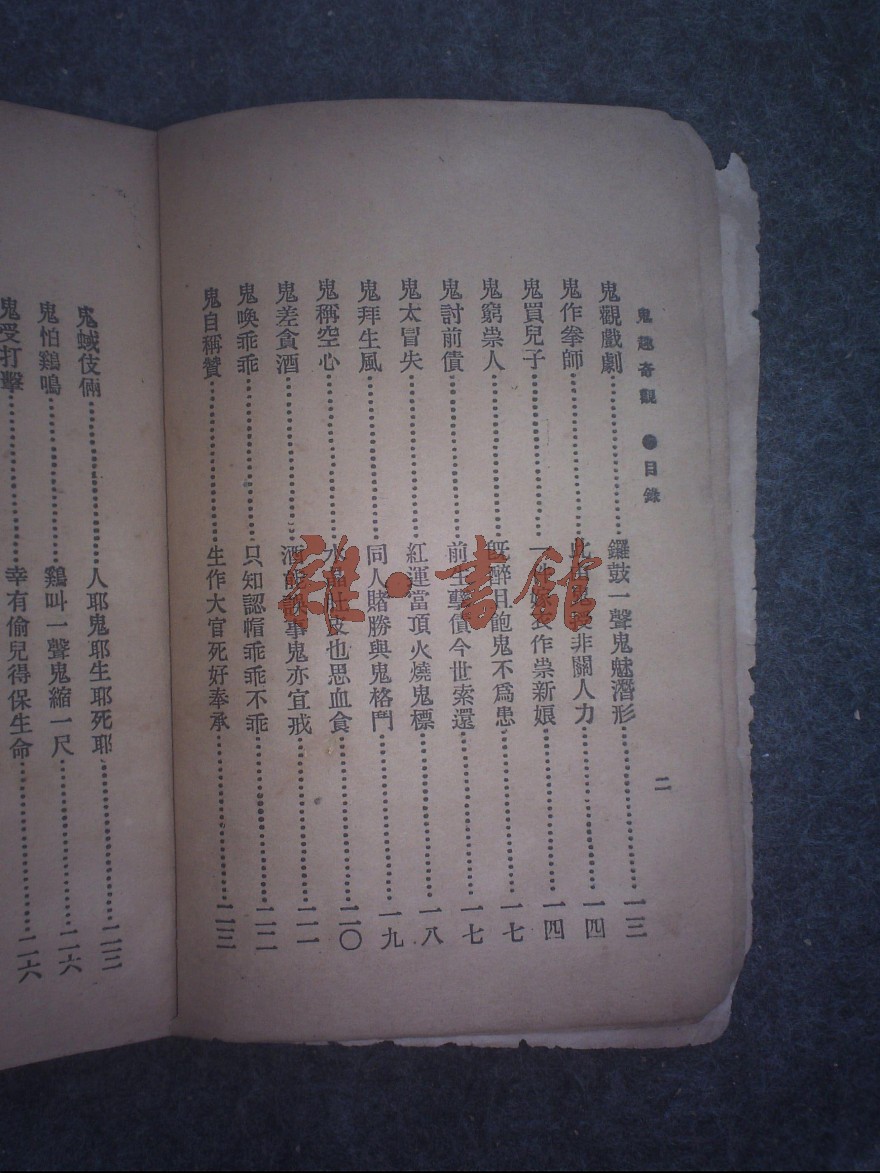 鬼趣奇觀 ●目錄
二
鬼觀戲劇……鑼鼓一聲鬼魅潛形……一三
鬼作拳師……非關人力……一四
鬼買兒子……作祟新娘……一四
鬼窮祟人……既醉且飽鬼不爲患……一七
鬼討前債……前生孽債今世索還……一七
鬼太冒失……紅運當頂火燒鬼標……一八
鬼拜生風……同人賭勝與鬼格鬥……一九
鬼稱空心……水晶肚皮也思血食……二〇
鬼差貪酒……酒能誤事鬼亦宜戒……二一
鬼喚乖乖……只知認幘乖乖不乖……二二
鬼自稱贊……生作大官死好奉承……二三
鬼蜮伎倆……人耶鬼耶生耶死耶……二三
鬼怕鷄鳴……鷄叫一聲鬼縮一尺……二六
鬼受打擊……幸有偷兒得保生命……二六
雜·書館